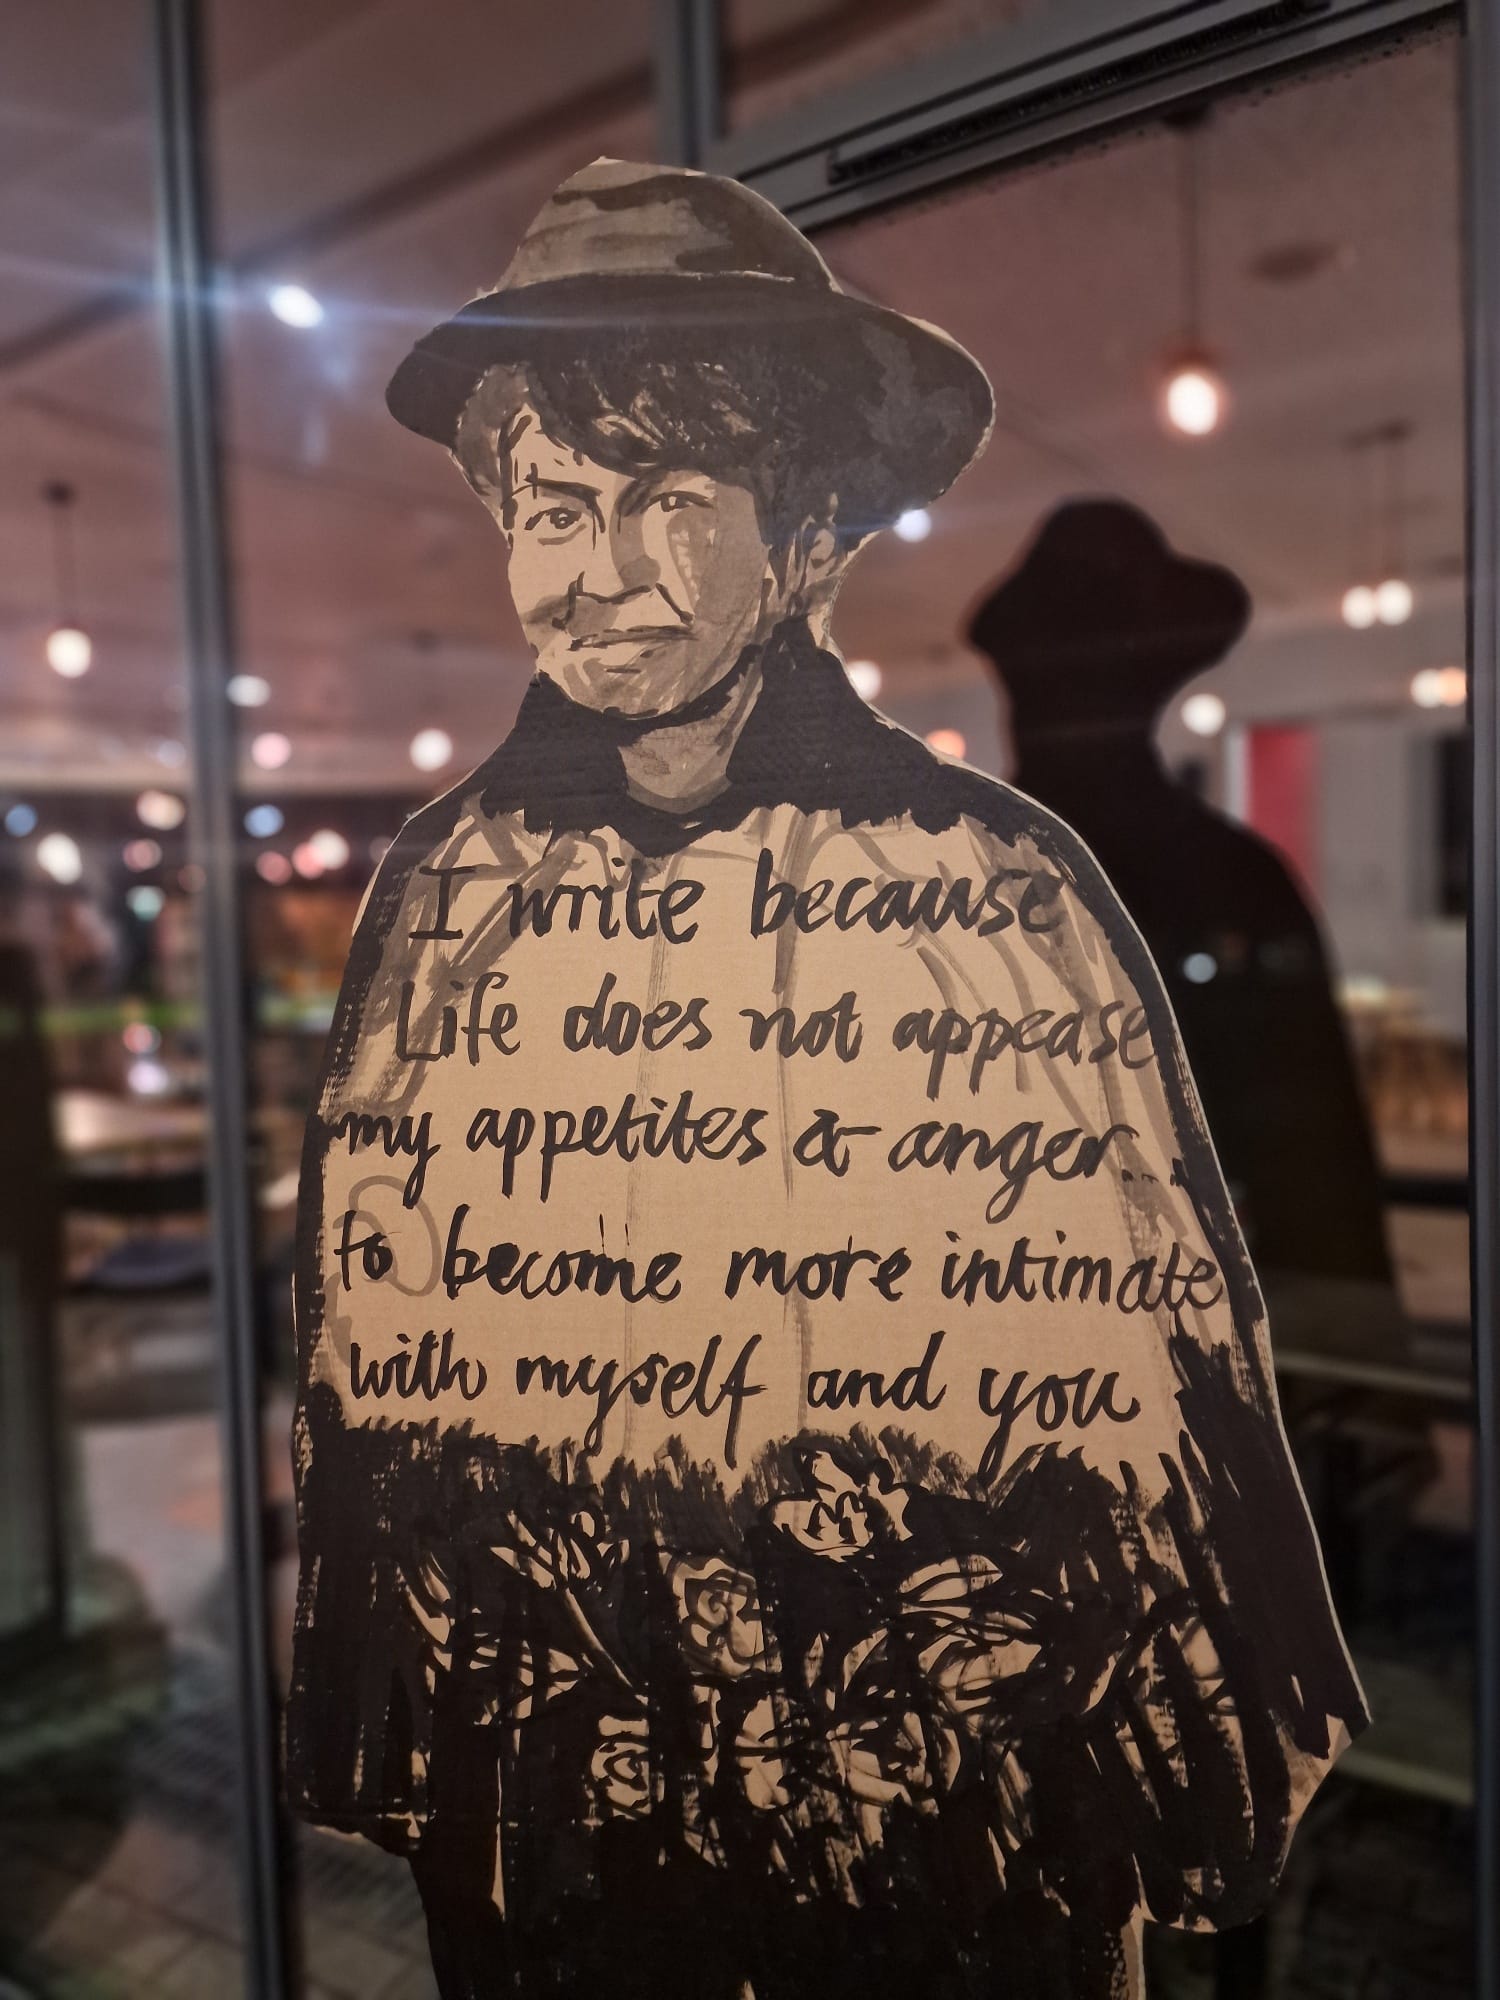 I write because
Life does not appease
my appetites & anger...
to become more intimate
with myself and you